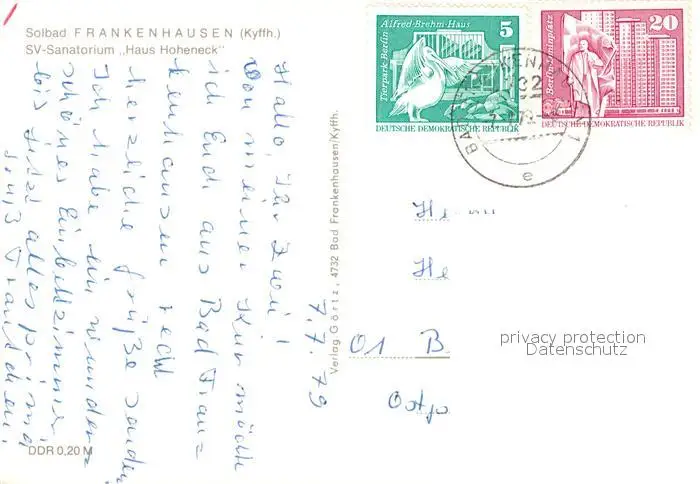 Solbad FRANKENHAUSEN (Kyffh.)
SV-Sanatorium „Haus Hoheneck"
Alfred-Brehm-Haus
5
Tierpark Berlin
DEUTSCHE DEMOKRATISCHE REPUBLIK
20
Berlin-Leninplatz
DEUTSCHE DEMOKRATISCHE REPUBLIK
e
7.7.79
Hallo, Ihr Zwei!
Von meiner Kur möchte
ich Euch aus Bad Fran=
kenhausen recht
herzliche Grüße senden
Ich habe ein wunder=
schönes Einbettzimmer
bis jetzt alles prima
Gruß
Verlag Görtz, 4732 Bad Frankenhausen/Kyffh.
He
O1 B.
privacy protection
Datenschutz
DDR 0,20 M